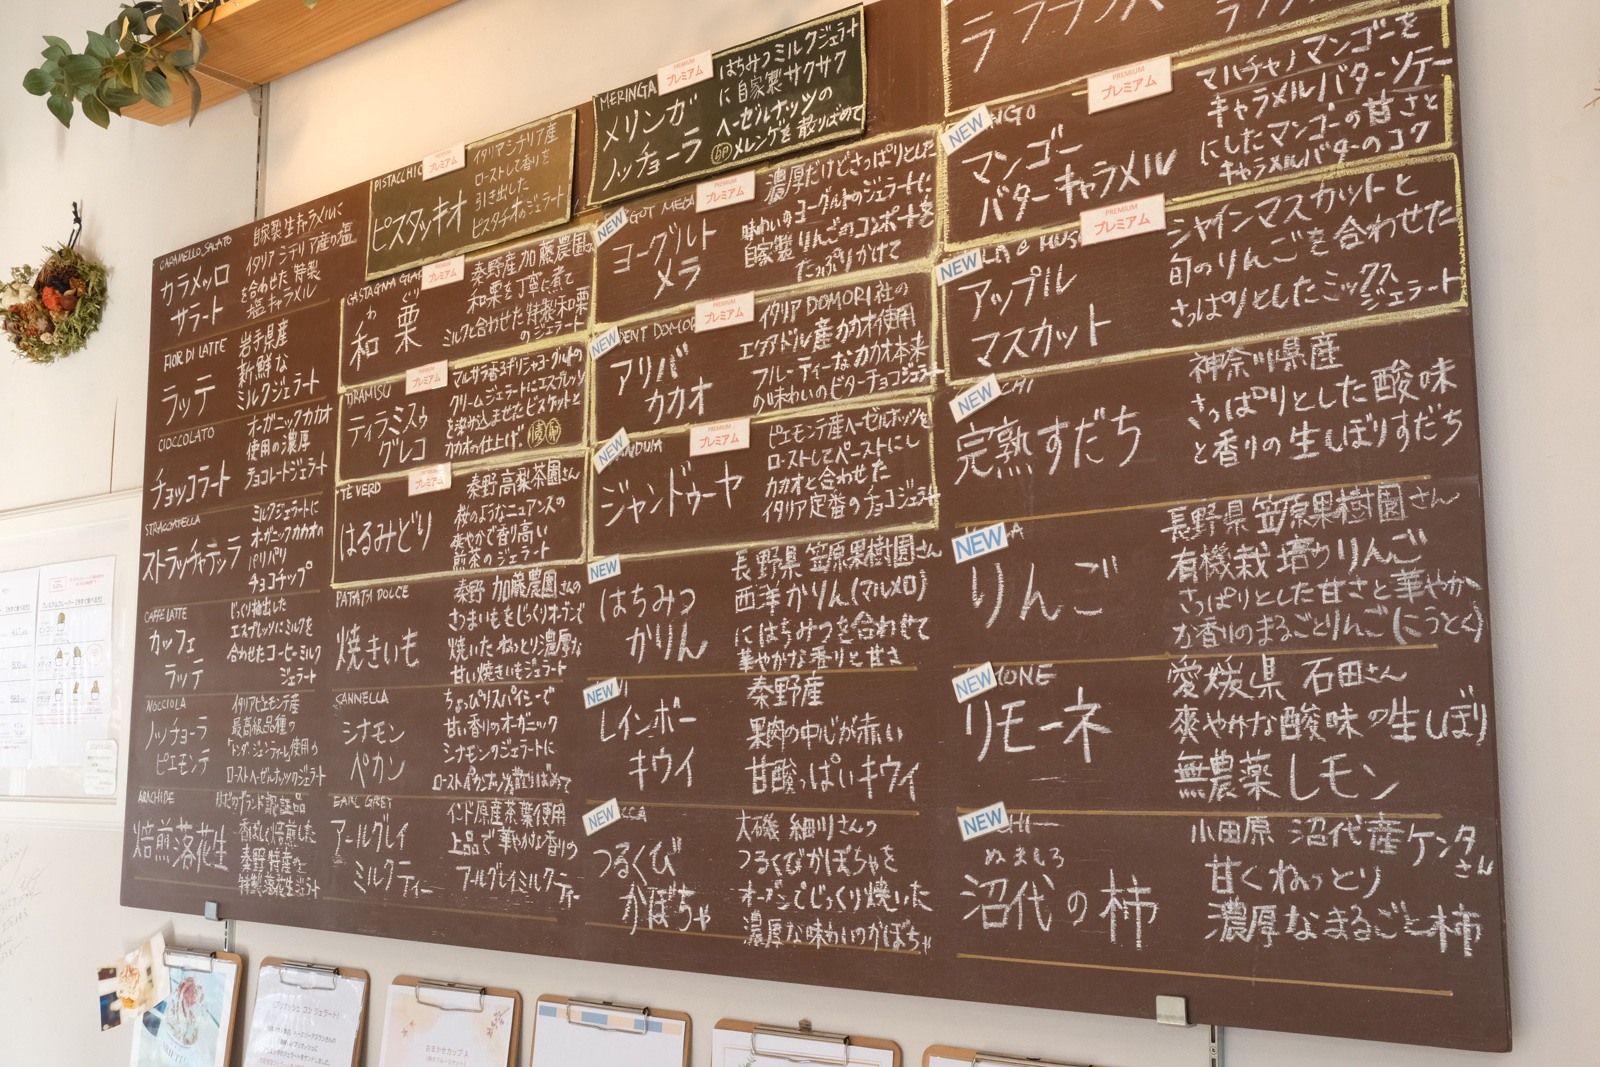 CARAMELLO SALATO
カラメッロ
サラート
自家製生キャラメルに
イタリアシチリア産の塩
を合わせた特製
塩キャラメル
FIOR DI LATTE
ラッテ
岩手県産
新鮮な
ミルクジェラート
CIOCCOLATO
チョッコラート
オーガニックカカオ
使用の濃厚
チョコレートジェラート
STRACCIATELLA
ストラッチャテッラ
ミルクジェラートに
オーガニックカカオの
パリパリ
チョコチップ
CAFFE LATTE
カッフェ
ラッテ
じっくり抽出した
エスプレッソにミルクを
合わせたコーヒーミルク
ジェラート
NOCCIOLA
ノッチョーラ
ピエモンテ
イタリアピエモンテ産
最高級品種の
「トンダ・ジェンティーレ」使用の
ローストヘーゼルナッツのジェラート
ARACHIDE
焙煎落花生
はだのブランド認証品
香ばしく焙煎した
秦野特産の
特製落花生ジェラート
PISTACCHIO
PREMIUM
プレミアム
ピスタッキオ
イタリアシチリア産
ローストして香りを
引き出した
ピスタチオのジェラート
CASTAGNA
プレミアム
わ ぐり
和栗
秦野産加藤農園さん
和栗を丁寧に煮て
ミルクと合わせた特製和栗
のジェラート
TIRAMISU
プレミアム
ティラミスゥ
グレコ
マルサラ香るギリシャヨーグルトの
クリームジェラートにエスプレッソ
を染み込ませたビスケットと
カカオの仕上げ
TE VERD
プレミアム
はるみどり
秦野高梨茶園さん
桜のようなニュアンスの
爽やかで香り高い
煎茶のジェラート
PATATA DOLCE
焼きいも
秦野 加藤農園さんの
さつまいもをじっくりオーブンで
焼いた ねっとり濃厚な
甘い焼きいもジェラート
CANNELLA
シナモン
ペカン
ちょっぴりスパイシーで
甘い香りのオーガニック
シナモンのジェラートに
ローストペカンナッツを散りばめて
EARL GREY
アールグレイ
ミルクティー
インド原産茶葉使用
上品で華やかな香りの
アールグレイミルクティー
MERINGA
PREMIUM
プレミアム
メリンガ
ノッチョーラ
はちみつミルクジェラート
に自家製サクサク
ヘーゼルナッツの
メレンゲを散りばめて
NEW
PREMIUM
プレミアム
ヨーグルト
メラ
濃厚だけどさっぱりとした
味わいのヨーグルトのジェラートに
自家製りんごのコンポートを
たっぷりかけて
NEW
PREMIUM
プレミアム
アリバ
カカオ
イタリアDOMORI社の
エクアドル産カカオ使用
フルーティーなカカオ本来
の味わいのビターチョコジェラート
NEW
PREMIUM
プレミアム
ジャンドゥーヤ
ピエモンテ産ヘーゼルナッツを
ローストしてペーストにし
カカオと合わせた
イタリア定番のチョコジェラート
NEW
はちみつ
かりん
長野県笠原果樹園さん
西洋かりん(マルメロ)
にはちみつを合わせて
華やかな香りと甘さ
NEW
レインボー
キウイ
秦野産
果肉の中心が赤い
甘酸っぱいキウイ
NEW
つるくび
かぼちゃ
大磯 細川さんの
つるくびかぼちゃを
オーブンでじっくり焼いた
濃厚な味わいのかぼちゃ
NEW
PREMIUM
プレミアム
マンゴー
バターキャラメル
マハチャノマンゴーを
キャラメルバターソテー
にしたマンゴーの甘さと
キャラメルバターのコク
NEW
PREMIUM
プレミアム
アップル
マスカット
シャインマスカットと
旬のりんごを合わせた
さっぱりとしたミックス
ジェラート
NEW
完熟すだち
神奈川県産
さっぱりとした酸味
と香りの生しぼりすだち
NEW
りんご
長野県笠原果樹園さん
有機栽培のりんご
さっぱりとした甘さと華やか
な香りのまるごとりんご(こうとく)
NEW
リモーネ
愛媛県 石田さん
爽やかな酸味の生しぼり
無農薬レモン
NEW
ぬましろ
沼代の柿
小田原 沼代産ケンタ
さん
甘くねっとり
濃厚なまるごと柿